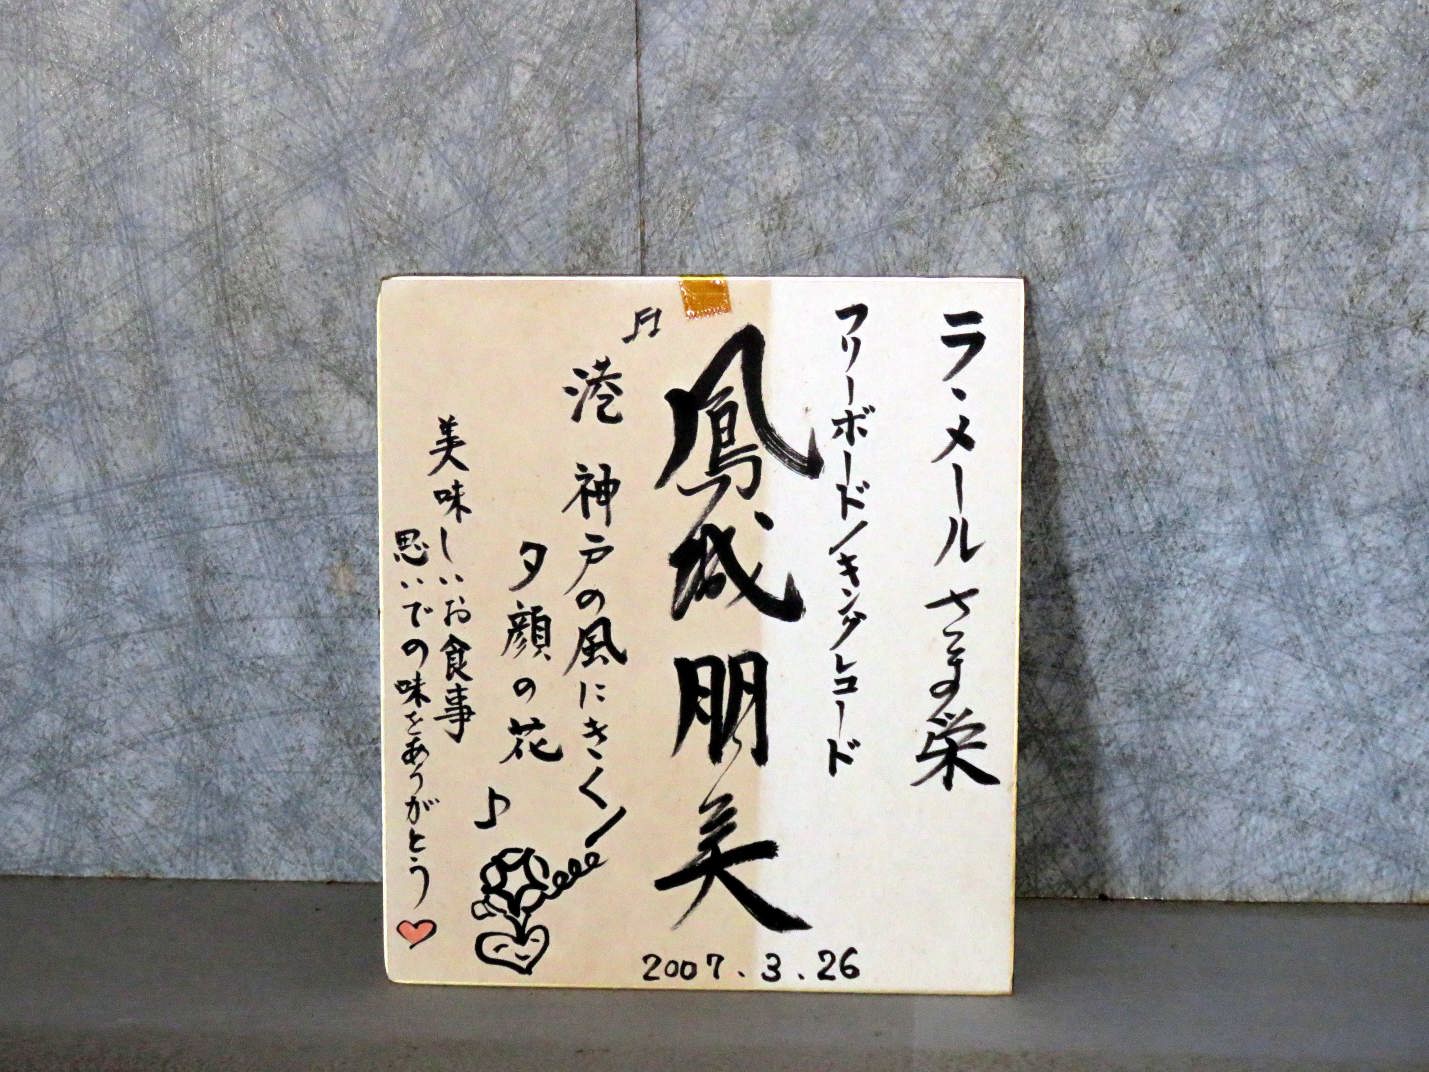 ラ・メールさま江
フリーボード/キングレコード
鳳城朋美
♬港 神戸の風にきく/
夕顔の花♪
美味しいお食事
思いでの味をありがとう
2007.3.26